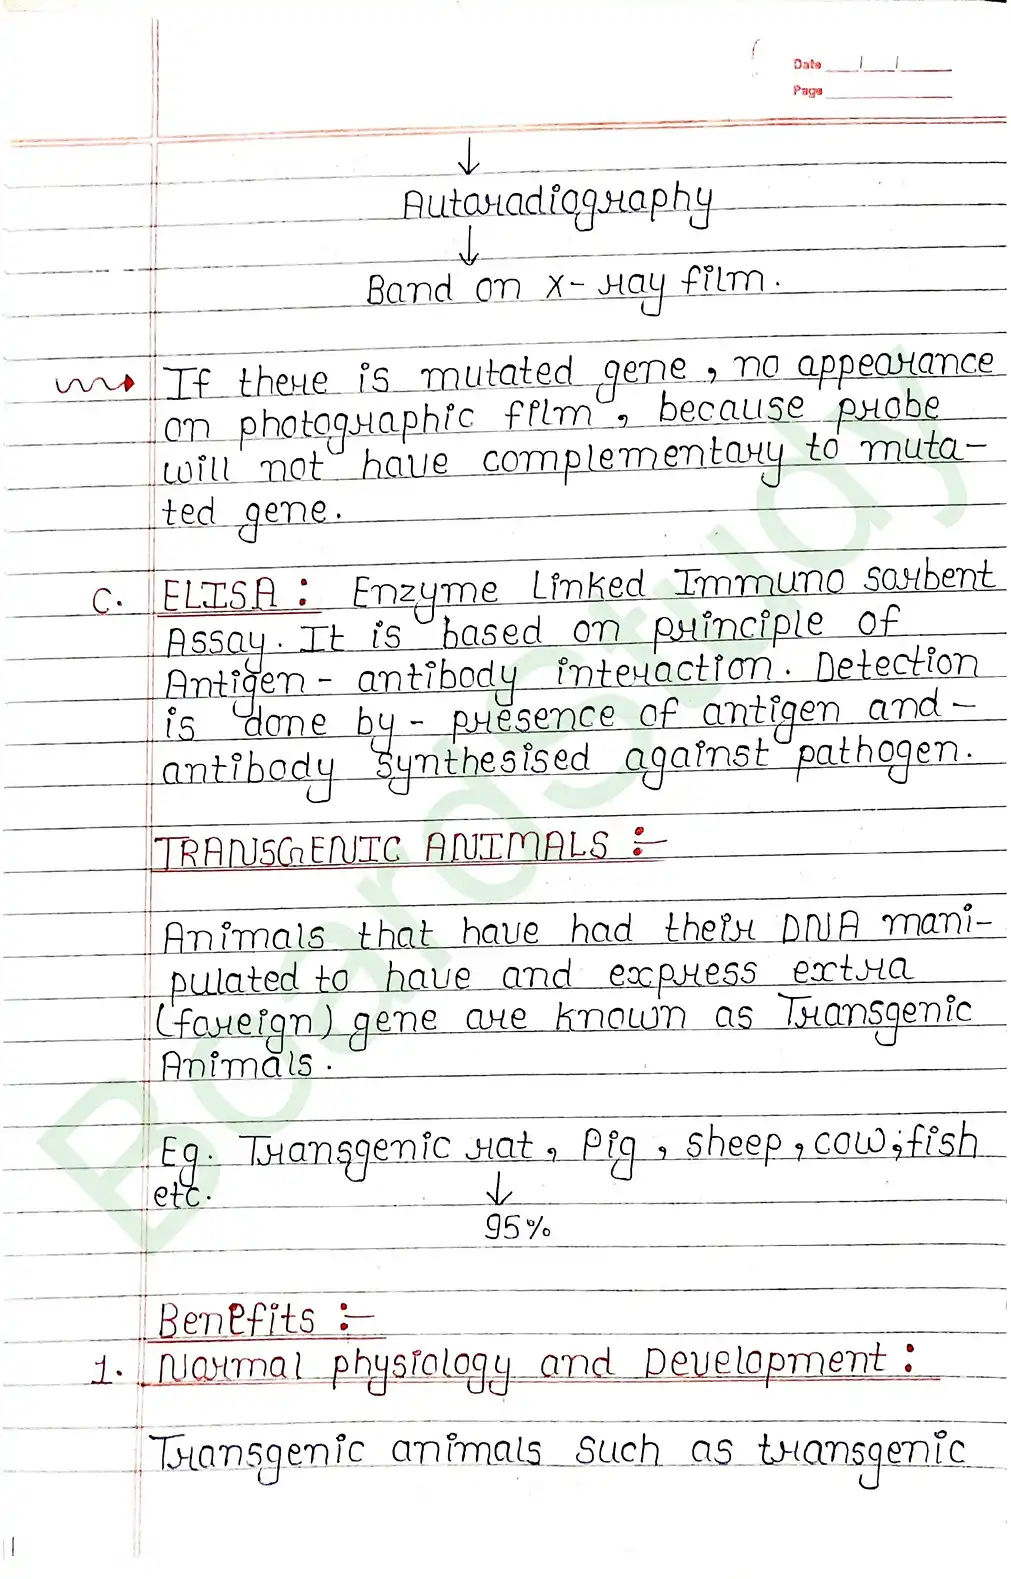 Date / /
Page
↓
Autoradiography
↓
Band on X-ray film.
If there is mutated gene, no appearance
on photographic film, because probe
will not have complementary to muta-
ted gene.
C. ELISA: Enzyme Linked Immuno sorbent
Assay. It is based on principle of
Antigen - antibody interaction. Detection
is done by - presence of antigen and -
antibody synthesised against pathogen.
TRANSGENIC ANIMALS :-
Animals that have had their DNA mani-
pulated to have and express extra
(foreign) gene are known as Transgenic
Animals.
Eg. Transgenic rat, Pig, sheep, cow, fish
etc. ↓
95%
Benefits :-
1. Normal physiology and Development:
Transgenic animals such as transgenic
BoardStudy